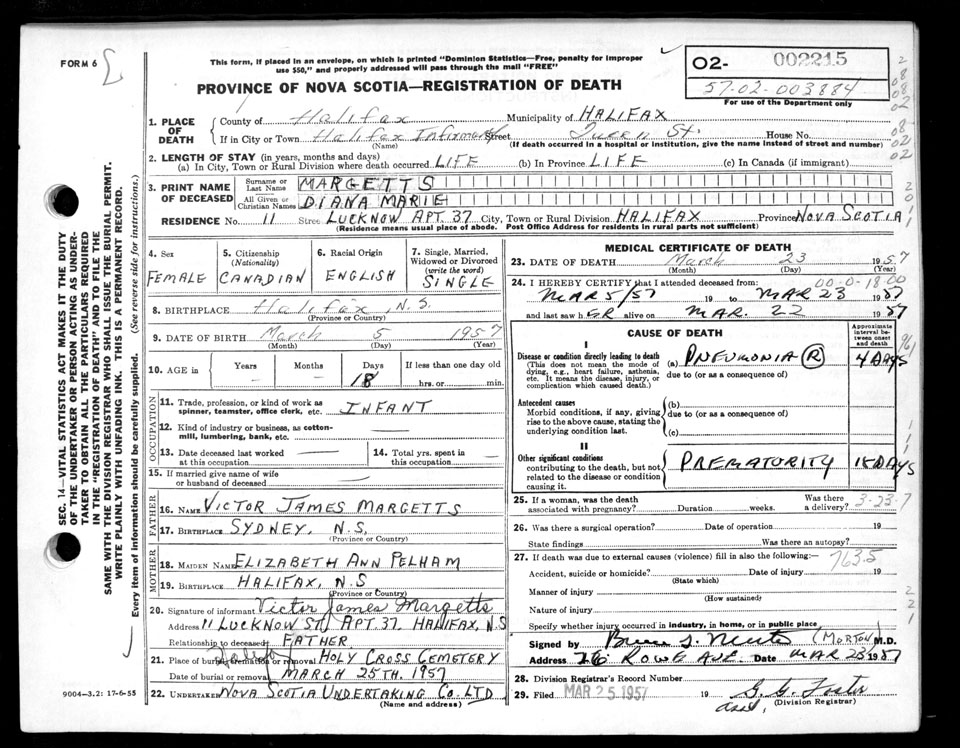 FORM 6
This form, if placed in an envelope, on which is printed "Dominion Statistics—Free, penalty for improper
use $50," and properly addressed will pass through the mail "FREE"
PROVINCE OF NOVA SCOTIA—REGISTRATION OF DEATH
02- 002215
57-02-003884
For use of the Department only
1. PLACE OF DEATH
County of Halifax Municipality of HALIFAX
If in City or Town Halifax Infirmary Street Queen St. House No.
(Name) (If death occurred in a hospital or institution, give the name instead of street and number)
2. LENGTH OF STAY (in years, months and days)
(a) In City, Town or Rural Division where death occurred LIFE (b) In Province LIFE (c) In Canada (if immigrant)
3. PRINT NAME OF DECEASED
Surname or Last Name MARGETTS
All Given or Christian Names DIANA MARIE
RESIDENCE No. 11 Street LUCKNOW APT. 37 City, Town or Rural Division HALIFAX Province NOVA SCOTIA
(Residence means usual place of abode. Post Office Address for residents in rural parts not sufficient)
4. Sex FEMALE
5. Citizenship (Nationality) CANADIAN
6. Racial Origin ENGLISH
7. Single, Married, Widowed or Divorced (write the word) SINGLE
8. BIRTHPLACE Halifax N.S.
(Province or Country)
9. DATE OF BIRTH March 5 1957
(Month) (Day) (Year)
10. AGE in Years — Months — Days 18 If less than one day old
hrs. or min.
OCCUPATION
11. Trade, profession, or kind of work as
spinner, teamster, office clerk, etc. INFANT
12. Kind of industry or business, as cotton-
mill, lumbering, bank, etc. —
13. Date deceased last worked
at this occupation —
14. Total yrs. spent in
this occupation —
15. If married give name of wife
or husband of deceased —
FATHER
16. NAME VICTOR JAMES MARGETTS
17. BIRTHPLACE SYDNEY, N.S.
(Province or Country)
MOTHER
18. MAIDEN NAME ELIZABETH ANN PELHAM
19. BIRTHPLACE HALIFAX, N.S
(Province or Country)
20. Signature of informant Victor James Margetts
Address 11 LUCKNOW ST. APT. 37. HALIFAX, N.S
Relationship to deceased FATHER
21. Place of burial, cremation or removal Halifax HOLY CROSS CEMETERY
Date of burial or removal MARCH 25TH. 1957
22. UNDERTAKER NOVA SCOTIA UNDERTAKING CO. LTD
(Name and address)
MEDICAL CERTIFICATE OF DEATH
23. DATE OF DEATH March 23 1957
(Month) (Day) (Year)
24. I HEREBY CERTIFY that I attended deceased from: 00-0-18-00
MAR 5/57 19 to MAR 23 1957
and last saw hER alive on MAR. 22 1957
CAUSE OF DEATH
Approximate interval between onset and death
I
Disease or condition directly leading to death
(This does not mean the mode of
dying, e.g., heart failure, asthenia,
etc. It means the disease, injury, or
complication which caused death.)
(a) PNEUMONIA (R) 4 DAYS
due to (or as a consequence of)
Antecedent causes
Morbid conditions, if any, giving
rise to the above cause, stating the
underlying condition last.
(b)
due to (or as a consequence of)
(c)
II
Other significant conditions
contributing to the death, but not
related to the disease or condition
causing it.
PREMATURITY 18 DAYS
25. If a woman, was the death
associated with pregnancy? Duration weeks. Was there
a delivery? 3-23-7
26. Was there a surgical operation? Date of operation 19
State findings Was there an autopsy?
27. If death was due to external causes (violence) fill in also the following:— 763.5
Accident, suicide or homicide? Date of injury 19
(State which)
Manner of injury
(How sustained)
Nature of injury
Specify whether injury occurred in industry, in home, or in public place
Signed by (MORTON) M.D.
Address 76 ROWE AVE. Date MAR 23 1957
28. Division Registrar's Record Number
29. Filed MAR 25 1957 19
Foster
(Division Registrar)
SEC. 14—VITAL STATISTICS ACT MAKES IT THE DUTY
OF THE UNDERTAKER OR PERSON ACTING AS UNDER-
TAKER TO OBTAIN ALL THE PARTICULARS REQUIRED
IN THE "REGISTRATION OF DEATH" AND TO FILE THE
SAME WITH THE DIVISION REGISTRAR WHO SHALL ISSUE THE BURIAL PERMIT.
WRITE PLAINLY WITH UNFADING INK. THIS IS A PERMANENT RECORD.
Every item of information should be carefully supplied. (See reverse side for instructions.)
9004—3.2: 17-6-55